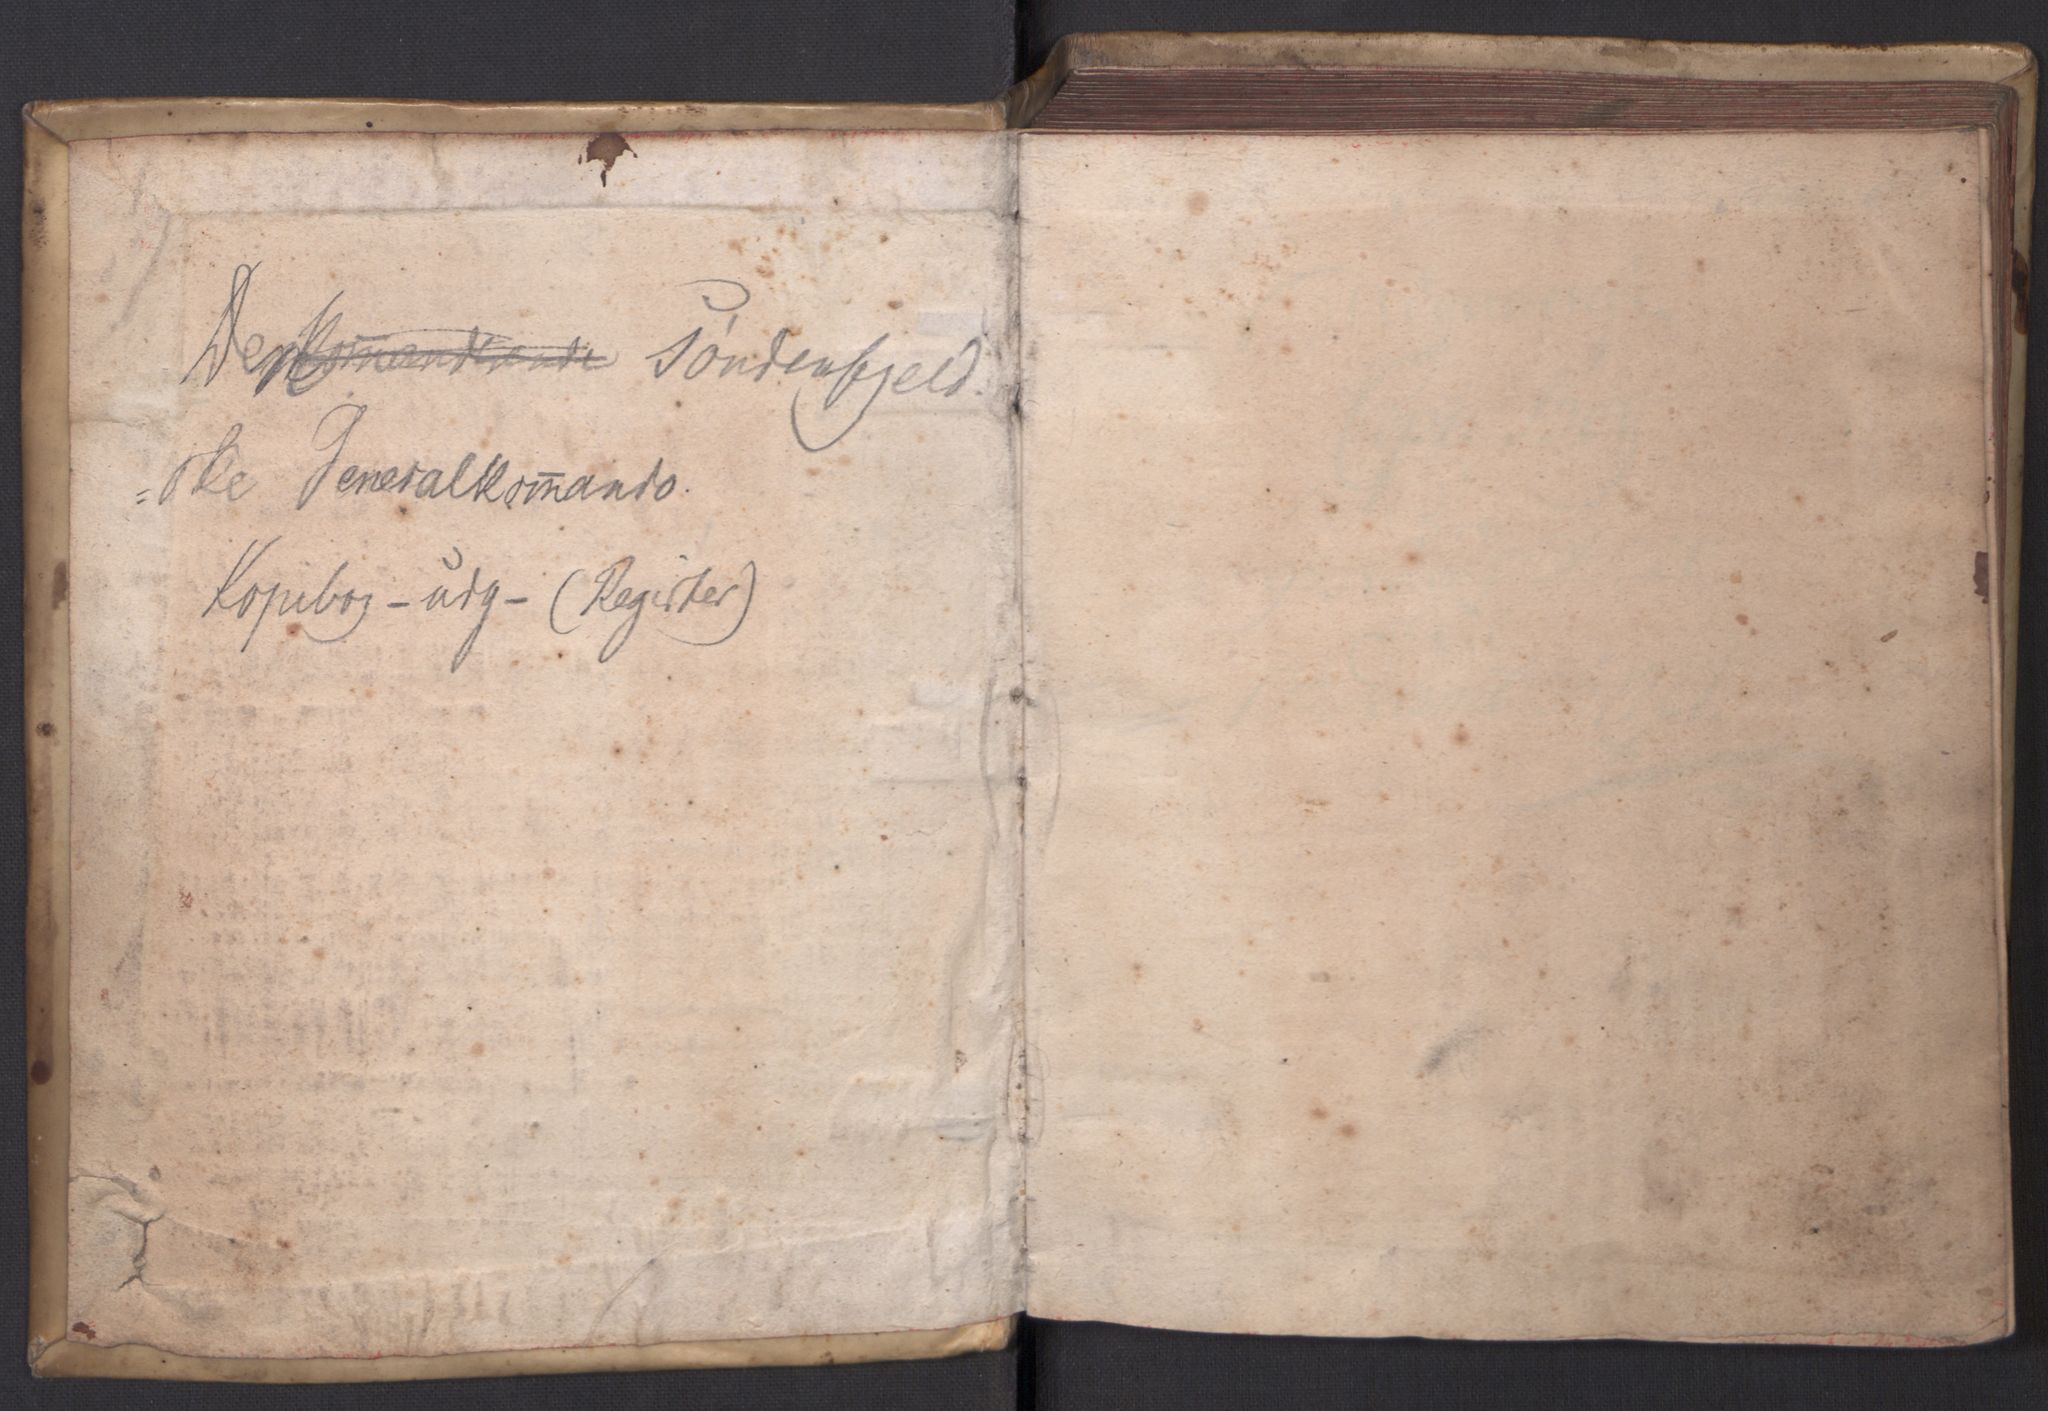 Den Kom̄anderende Søndenfjeld.
=ske Generalkom̄ando.
Kopibog - udg - (Register)